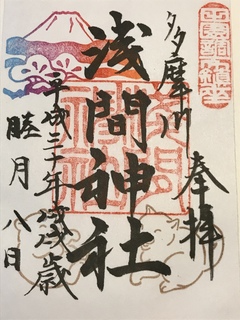 奉拝
多摩川
浅間神社
平成三十年戊戌歳
睦月八日